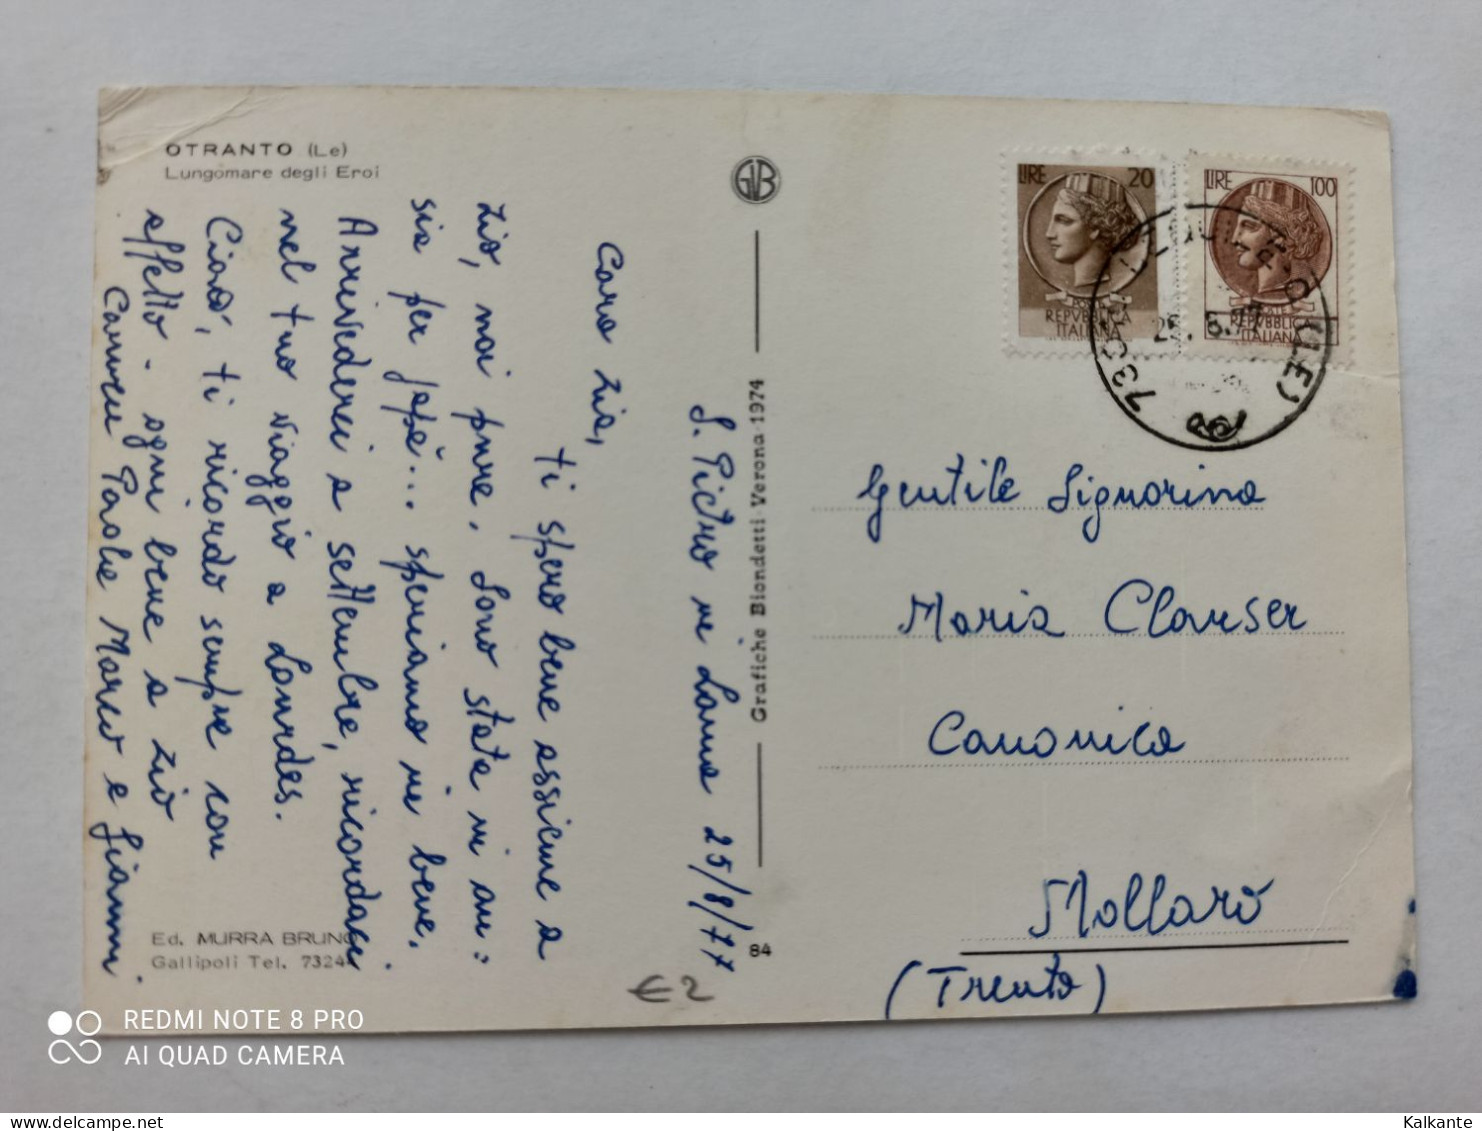 OTRANTO (Le)
Lungomare degli Eroi
S. Pietro in Lama 25/8/77
Cara zia,
ti spero bene assieme a
zio, noi pure. Sono stata in au=
sia per papà... speriamo in bene.
Arrivederci a settembre, ricordaci
nel tuo viaggio a Lourdes.
Ciao, ti ricordo sempre con
affetto - ogni bene a zio
Carmen Paola Marco e Gianni.
Ed. MURRA BRUNO
Gallipoli Tel. 7324
GVB
Grafiche Biondetti Verona 1974
84
€ 2
LIRE 20
REPVBBLICA
ITALIANA
LIRE 100
REPVBBLICA
ITALIANA
(LE)
Gentile Signorina
Maria Clauser
Canonica
Mollaro
(Trento)
REDMI NOTE 8 PRO
AI QUAD CAMERA
Kalkante